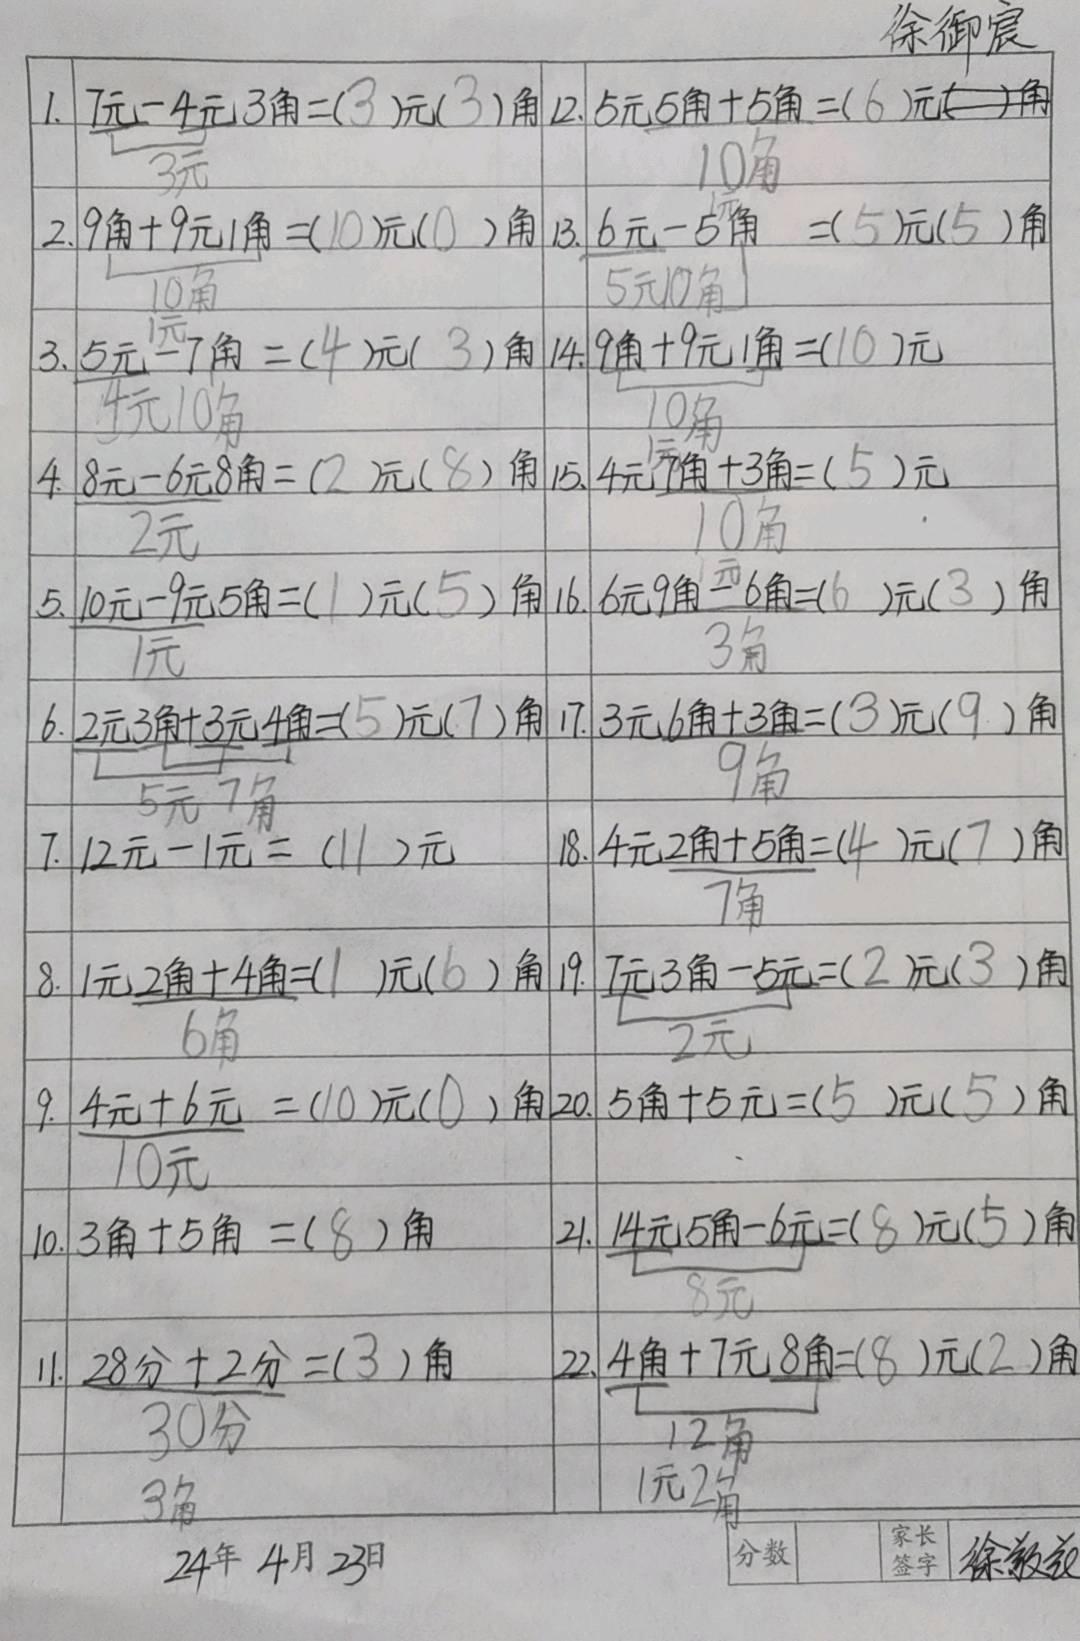 徐御宸
1. 7元-4元3角=(3)元(3)角
3元
2. 9角+9元1角=(10)元(0)角
10角
1元
3. 5元-7角=(4)元(3)角
4元10角
4. 8元-6元8角=(2)元(8)角
2元
5. 10元-9元5角=(1)元(5)角
1元
6. 2元3角+3元4角=(5)元(7)角
5元 7角
7. 12元-1元=(11)元
8. 1元2角+4角=(1)元(6)角
6角
9. 4元+6元=(10)元(0)角
10元
10. 3角+5角=(8)角
11. 28分+2分=(3)角
30分
3角
12. 5元5角+5角=(6)元( )角
10角
1元
13. 6元-5角=(5)元(5)角
5元10角
14. 9角+9元1角=(10)元
10角
1元
15. 4元7角+3角=(5)元
10角
1元
16. 6元9角-6角=(6)元(3)角
3角
17. 3元6角+3角=(3)元(9)角
9角
18. 4元2角+5角=(4)元(7)角
7角
19. 7元3角-5元=(2)元(3)角
2元
20. 5角+5元=(5)元(5)角
21. 14元5角-6元=(8)元(5)角
8元
22. 4角+7元8角=(8)元(2)角
12角
1元2角
24年4月23日
分数
家长
签字